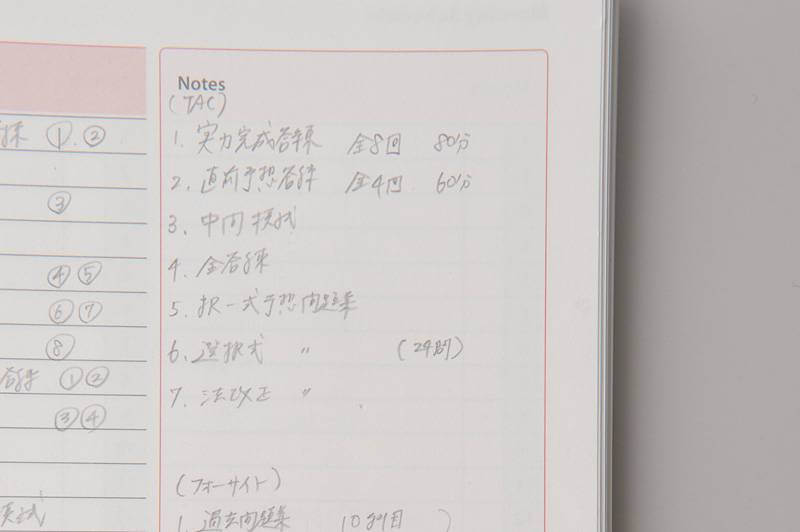 Notes
(TAC)
1. 実力完成答練 全8回 80分
2. 直前予想答練 全4回 60分
3. 中間模試
4. 全答練
5. 択一式予想問題集
6. 選択式 〃 (24問)
7. 法改正 〃
(フォーサイト)
1. 過去問題集 10
練 ① ②
③
④ ⑤
⑥ ⑦
⑧
答練 ① ②
③ ④
模試